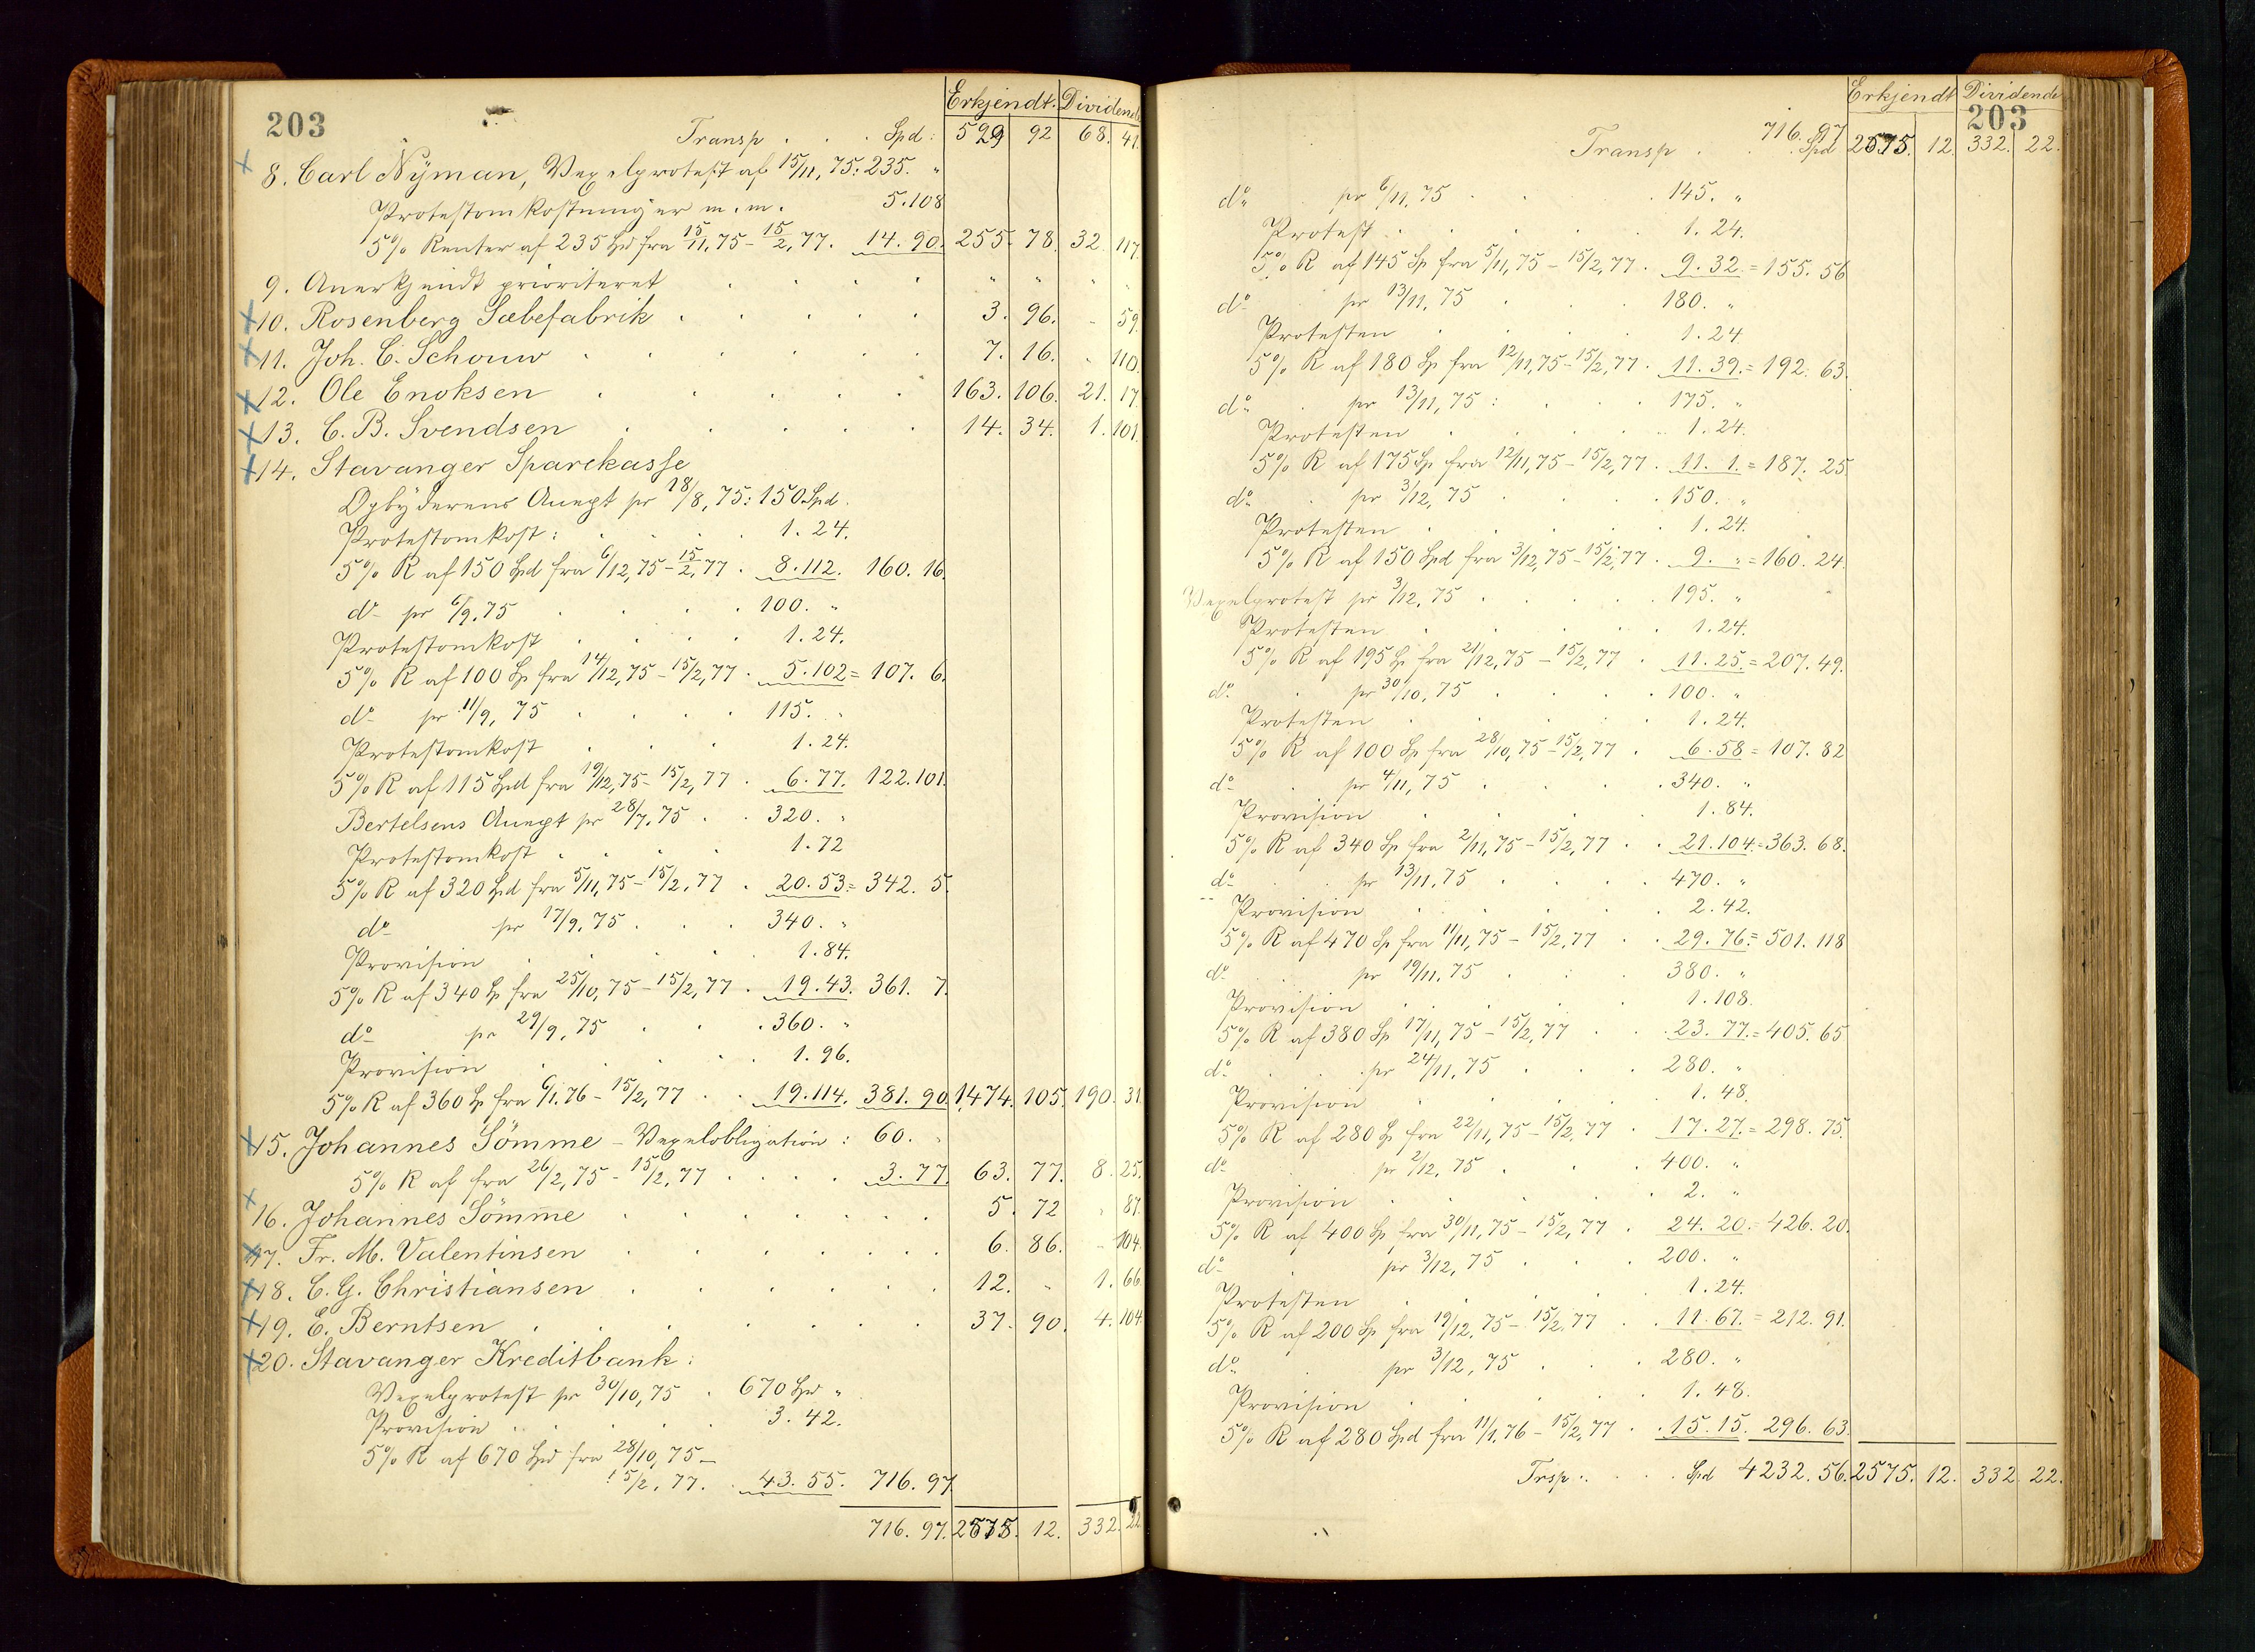 203
Erkjendt. Dividende
Transp . . . Spd: 529 92 68. 41.
8. Carl Nÿman, Vexelprotest af 15/11, 75: 235. "
Protestomkostninger m. m. 5.108
5% Renter af 235 Spd fra 15/11, 75 - 15/2, 77. 14. 90. 255. 78. 32. 117.
9. Anerkjendt prioriteret . . . . " " " "
10. Rosenberg Sæbefabrik . . . . . 3. 96. - 59.
11. Joh. C. Schouw . . . . . . 7. 16. " 110.
12. Ole Enoksen . . . . . 163. 106. 21. 17.
13. C. B. Svendsen . . . . . 14. 34. 1. 101.
14. Stavanger Sparekasse
Opbyderens Accept pr 18/8, 75: 150 Spd.
Protestomkost: . . . . 1. 24.
5% R af 150 Spd fra 6/12, 75 - 15/2, 77 . 8.112. 160. 16.
do pr 6/9. 75 . . . . 100. "
Protestomkost . . . . 1. 24.
5% R af 100 Sp fra 14/12, 75 - 15/2, 77 . 5.102 = 107. 6.
do pr 11/9, 75 . . . . 115. "
Protestomkost . . . 1. 24.
5% R af 115 Spd fra 19/12, 75 - 15/2, 77 . 6. 77. 122.101.
Bertelsens Accept pr 28/7. 75 . . 320. "
Protestomkost . . . . 1. 72
5% R af 320 Spd fra 5/11, 75 - 15/2, 77 . 20. 53 = 342. 5.
do pr 17/9. 75 . . . 340. "
Provision . . . . . 1. 84.
5% R af 340 Sp fra 25/10, 75 - 15/2, 77 . 19. 43. 361. 7.
do pr 29/9, 75 . . . 360. "
Provision . . . . . 1. 96.
5% R af 360 Sp fra 6/1. 76 - 15/2, 77 . . 19.114. 381. 90. 1474. 105. 190. 31.
15. Johannes Sömme - Vexelobligation: 60. "
5% R af fra 26/2, 75 - 15/2, 77 . . . . 3. 77. 63. 77. 8. 25.
16. Johannes Sömme . . . . . . 5. 72 " 87.
17. Fr. M. Valentinsen . . . . . . 6. 86. - 104.
18. C. G. Christiansen . . . . . . 12. " 1. 66
19. E. Berntsen . . . . . . 37. 90. 4. 104
20. Stavanger Kreditbank:
Vexelprotest pr 30/10, 75 . 670 Spd "
Provision . . . . . 3. 42.
5% R af 670 Spd fra 28/10, 75 -
15/2, 77. . 43. 55. 716. 97
716. 97. 2575. 12. 332. 22.
Erkjendt Dividende
203
716. 97
Transp . . . Spd 2575. 12. 332. 22.
do pr 6/11, 75 . . . 145. "
Protest . . . . . 1. 24.
5% R af 145 Sp fra 5/11, 75 - 15/2, 77 . 9. 32. = 155. 56
do pr 13/11, 75 . . . 180. "
Protesten . . . . 1. 24.
5% R af 180 Sp fra 12/11, 75 - 15/2, 77 . 11. 39. = 192. 63.
do pr 13/11, 75 : . . . 175. "
Protesten . . . . . 1. 24.
5% R af 175 Sp fra 12/11, 75 - 15/2, 77 . 11. 1. = 187. 25
do pr 3/12, 75 . . . . 150. "
Protesten . . . . . 1. 24.
5% R af 150 Spd fra 3/12, 75 - 15/2, 77 . 9. " = 160. 24.
Vexelprotest pr 3/12, 75 . . . . . 195. "
Protesten . . . . . 1. 24.
5% R af 195 Sp fra 21/12, 75 - 15/2, 77 . 11. 25. = 207. 49.
do pr 30/10, 75 . . . . 100. "
Protesten . . . . . 1. 24.
5% R af 100 Sp fra 28/10, 75 - 15/2, 77 . 6. 58 = 107. 82
do pr 4/11, 75 . . . . 340. "
Provision . . . . 1. 84.
5% R af 340 Sp fra 2/11, 75 - 15/2, 77 . . 21. 104. = 363. 68.
do pr 13/11. 75 . . . . 470. "
Provision . . . . . 2. 42.
5% R af 470 Sp fra 11/11, 75 - 15/2, 77 . . 29. 76. = 501. 118
do pr 19/11. 75 . . . 380. "
Provision . . . . . 1. 108.
5% R af 380 Sp 17/11, 75 - 15/2, 77 . . 23. 77. = 405. 65
do pr 24/11, 75 . . . 280. "
Provision . . . . . 1. 48.
5% R af 280 Sp fra 22/11, 75 - 15/2, 77 . 17. 27. = 298. 75.
do pr 2/12, 75 . . . 400. "
Provision . . . . . 2. "
5% R af 400 Sp fra 30/11, 75 - 15/2, 77 . 24. 20. = 426. 20.
do pr 3/12, 75 . . . 200. "
Protesten . . . . . 1. 24.
5% R af 200 Sp fra 19/12, 75 - 15/2, 77 . . 11. 67. = 212. 91.
do pr 3/12, 75 . . . 280. "
Provision . . . . . 1. 48.
5% R af 280 Spd fra 11/1. 76 - 15/2, 77 . . 15. 15. 296. 63.
Trsp . . . . Spd 4232. 56. 2575. 12. 332. 22.